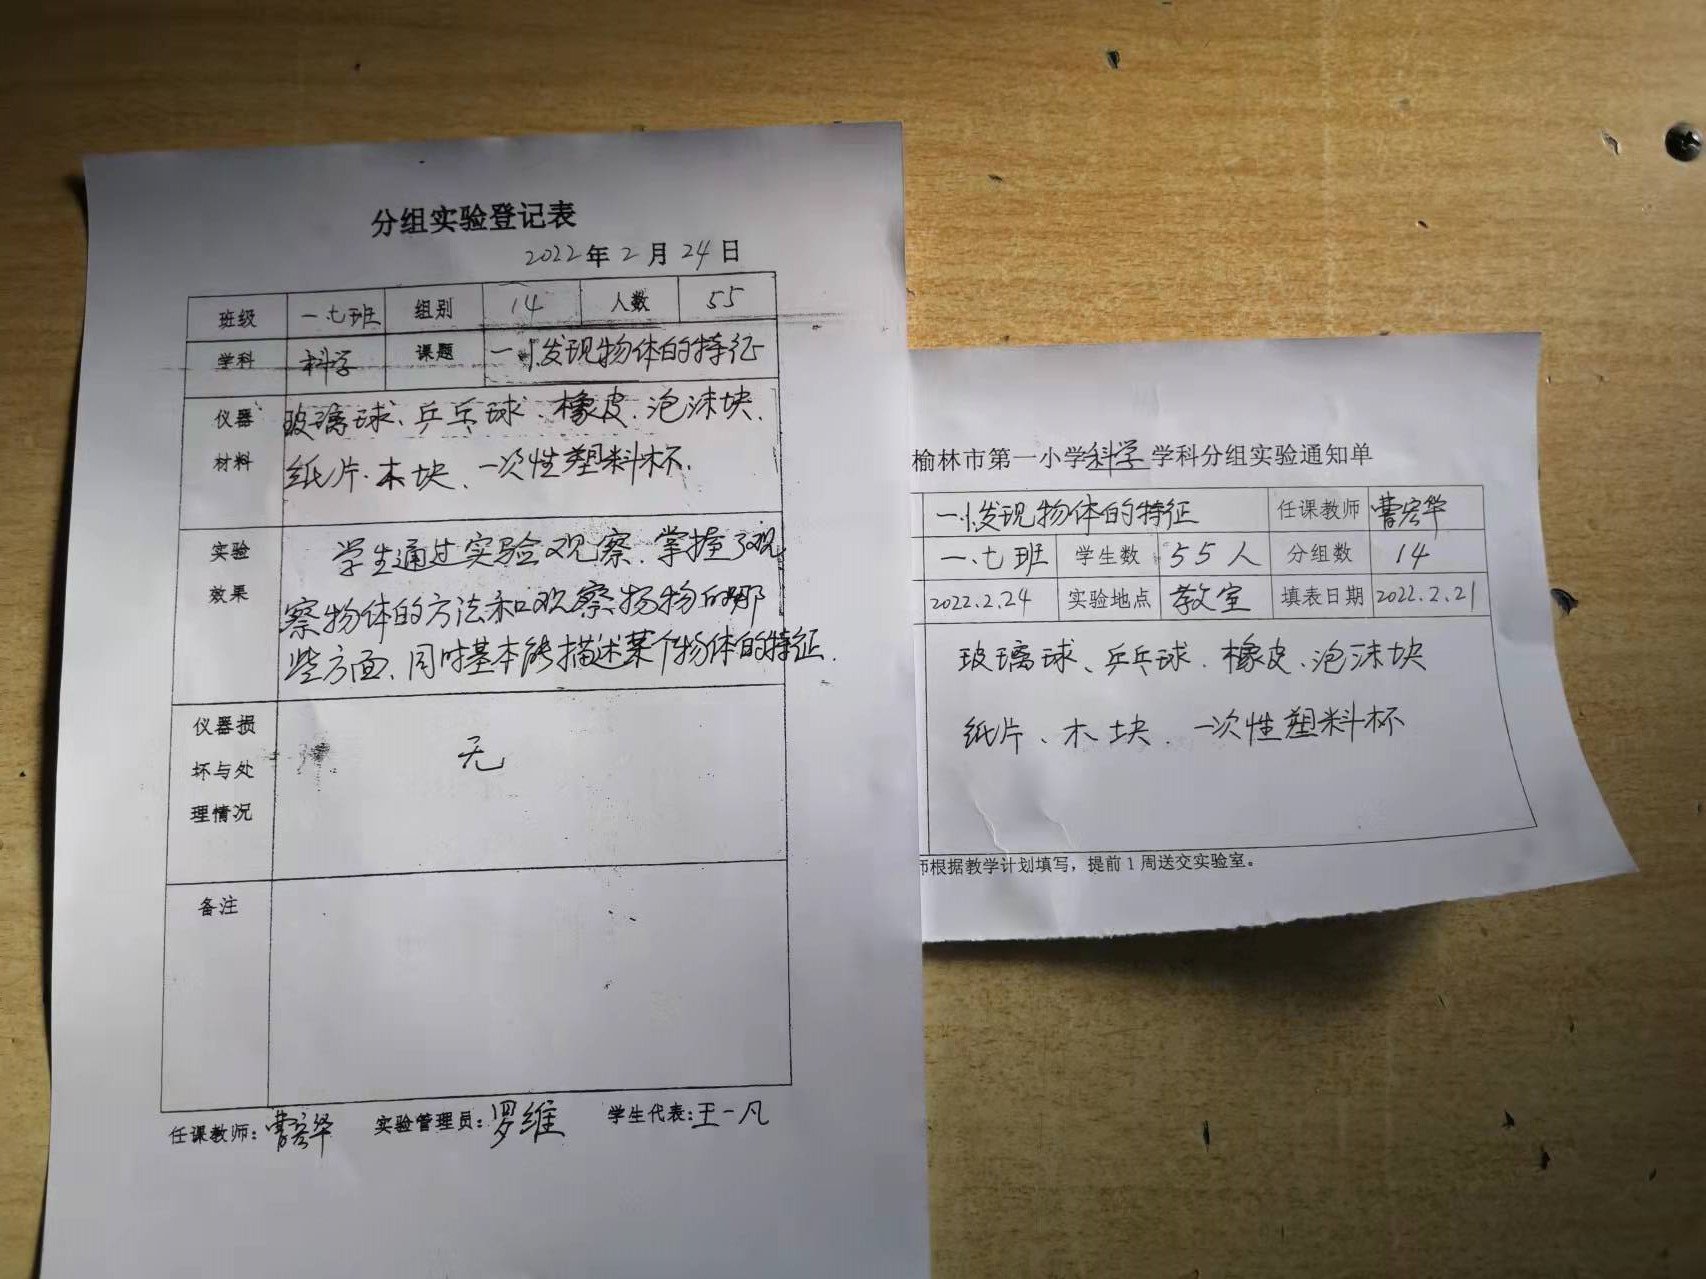 分组实验登记表
2022年2月24日
班级 一.七班 组别 14 人数 55
学科 科学 课题 一.1.发现物体的特征
仪器 玻璃球、乒乓球、橡皮、泡沫块、
材料 纸片、木块、一次性塑料杯.
实验 学生通过实验观察.掌握了观
效果 察物体的方法和观察物体的哪
些方面、同时基本能描述某个物体的特征.
仪器损
坏与处 无
理情况
备注
任课教师:曹宏华 实验管理员:罗维 学生代表:王一凡
榆林市第一小学科学学科分组实验通知单
一.1.发现物体的特征 任课教师 曹宏华
一.七班 学生数 55人 分组数 14
2022.2.24 实验地点 教室 填表日期 2022.2.21
玻璃球、乒乓球、橡皮、泡沫块
纸片、木块、一次性塑料杯
师根据教学计划填写，提前1周送交实验室。